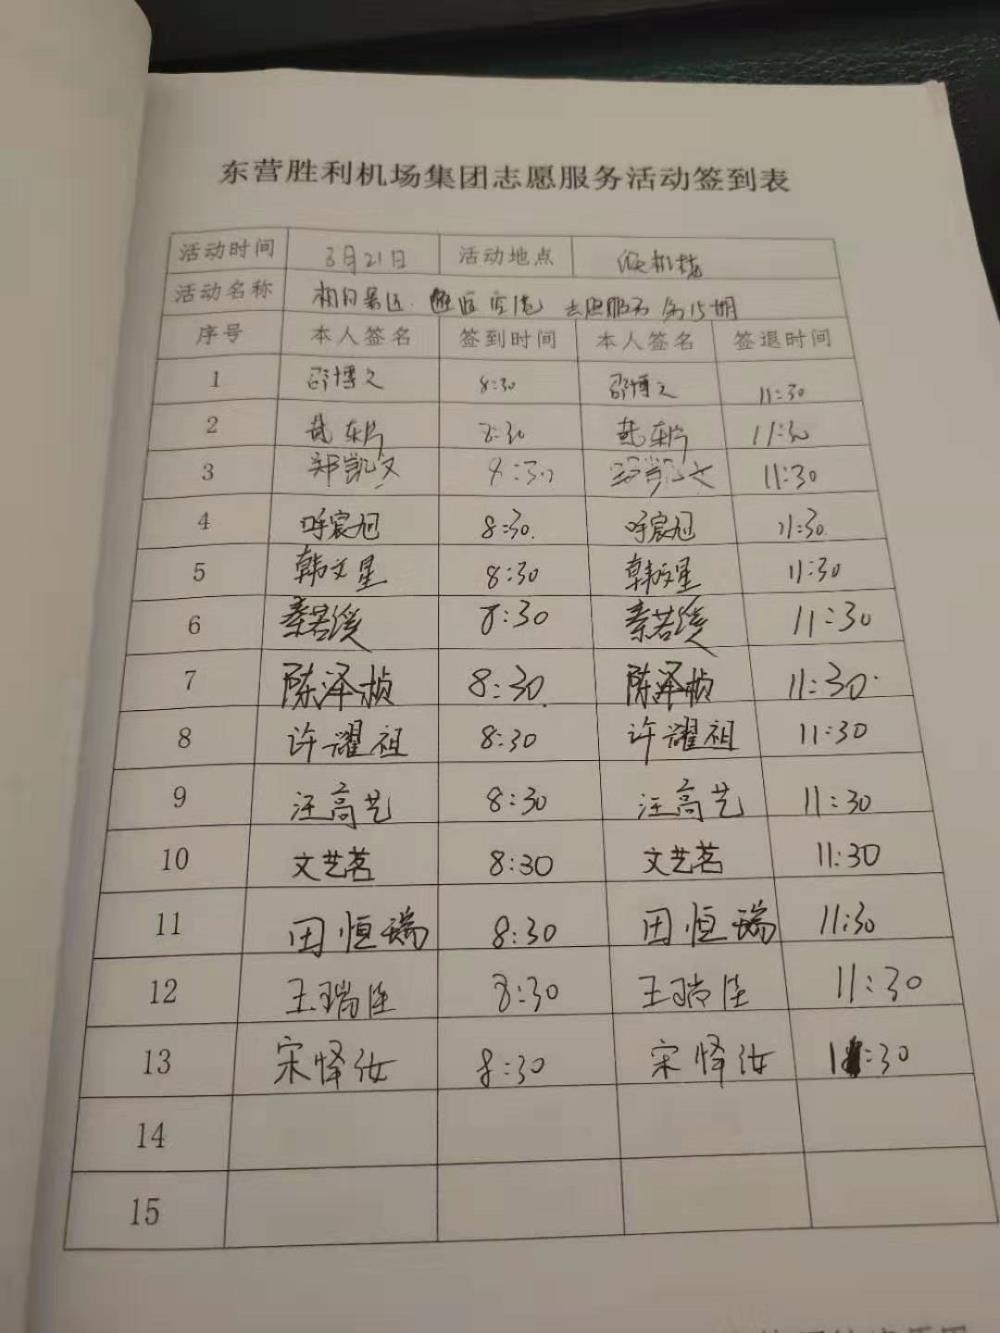 东营胜利机场集团志愿服务活动签到表
活动时间 3月21日 活动地点 候机楼
活动名称 志愿服务 第15期
序号 本人签名 签到时间 本人签名 签退时间
1 邵博文 8:30 邵博文 11:30
2 8:30 11:30
3 郑凯文 8:30 郑凯文 11:30
4 呼宸旭 8:30. 呼宸旭 11:30.
5 韩文星 8:30 韩文星 11:30
6 秦若溪 8:30 秦若溪 11:30
7 陈泽桢 8:30. 陈泽桢 11:30.
8 许耀祖 8:30 许耀祖 11:30
9 汪高艺 8:30 汪高艺 11:30
10 文艺茗 8:30 文艺茗 11:30
11 田恒瑞 8:30 田恒瑞 11:30
12 王瑞佳 8:30 王瑞佳 11:30
13 宋怿汝 8:30 宋怿汝 11:30
14
15